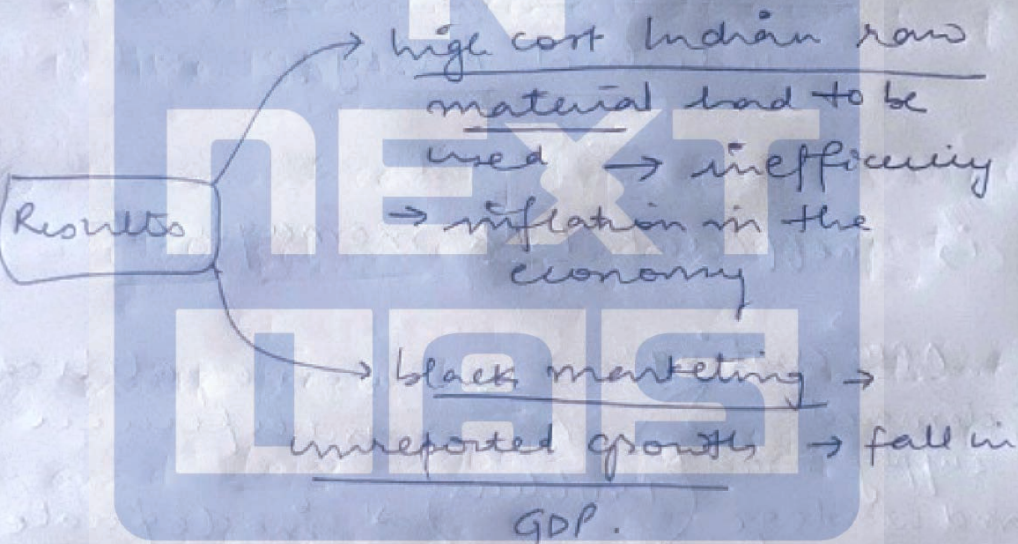 Results
→ high cost Indian raw
material had to be
used → inefficiency
→ inflation in the
economy
→ black marketing →
unreported growth → fall in
GDP.
NEXT
IAS